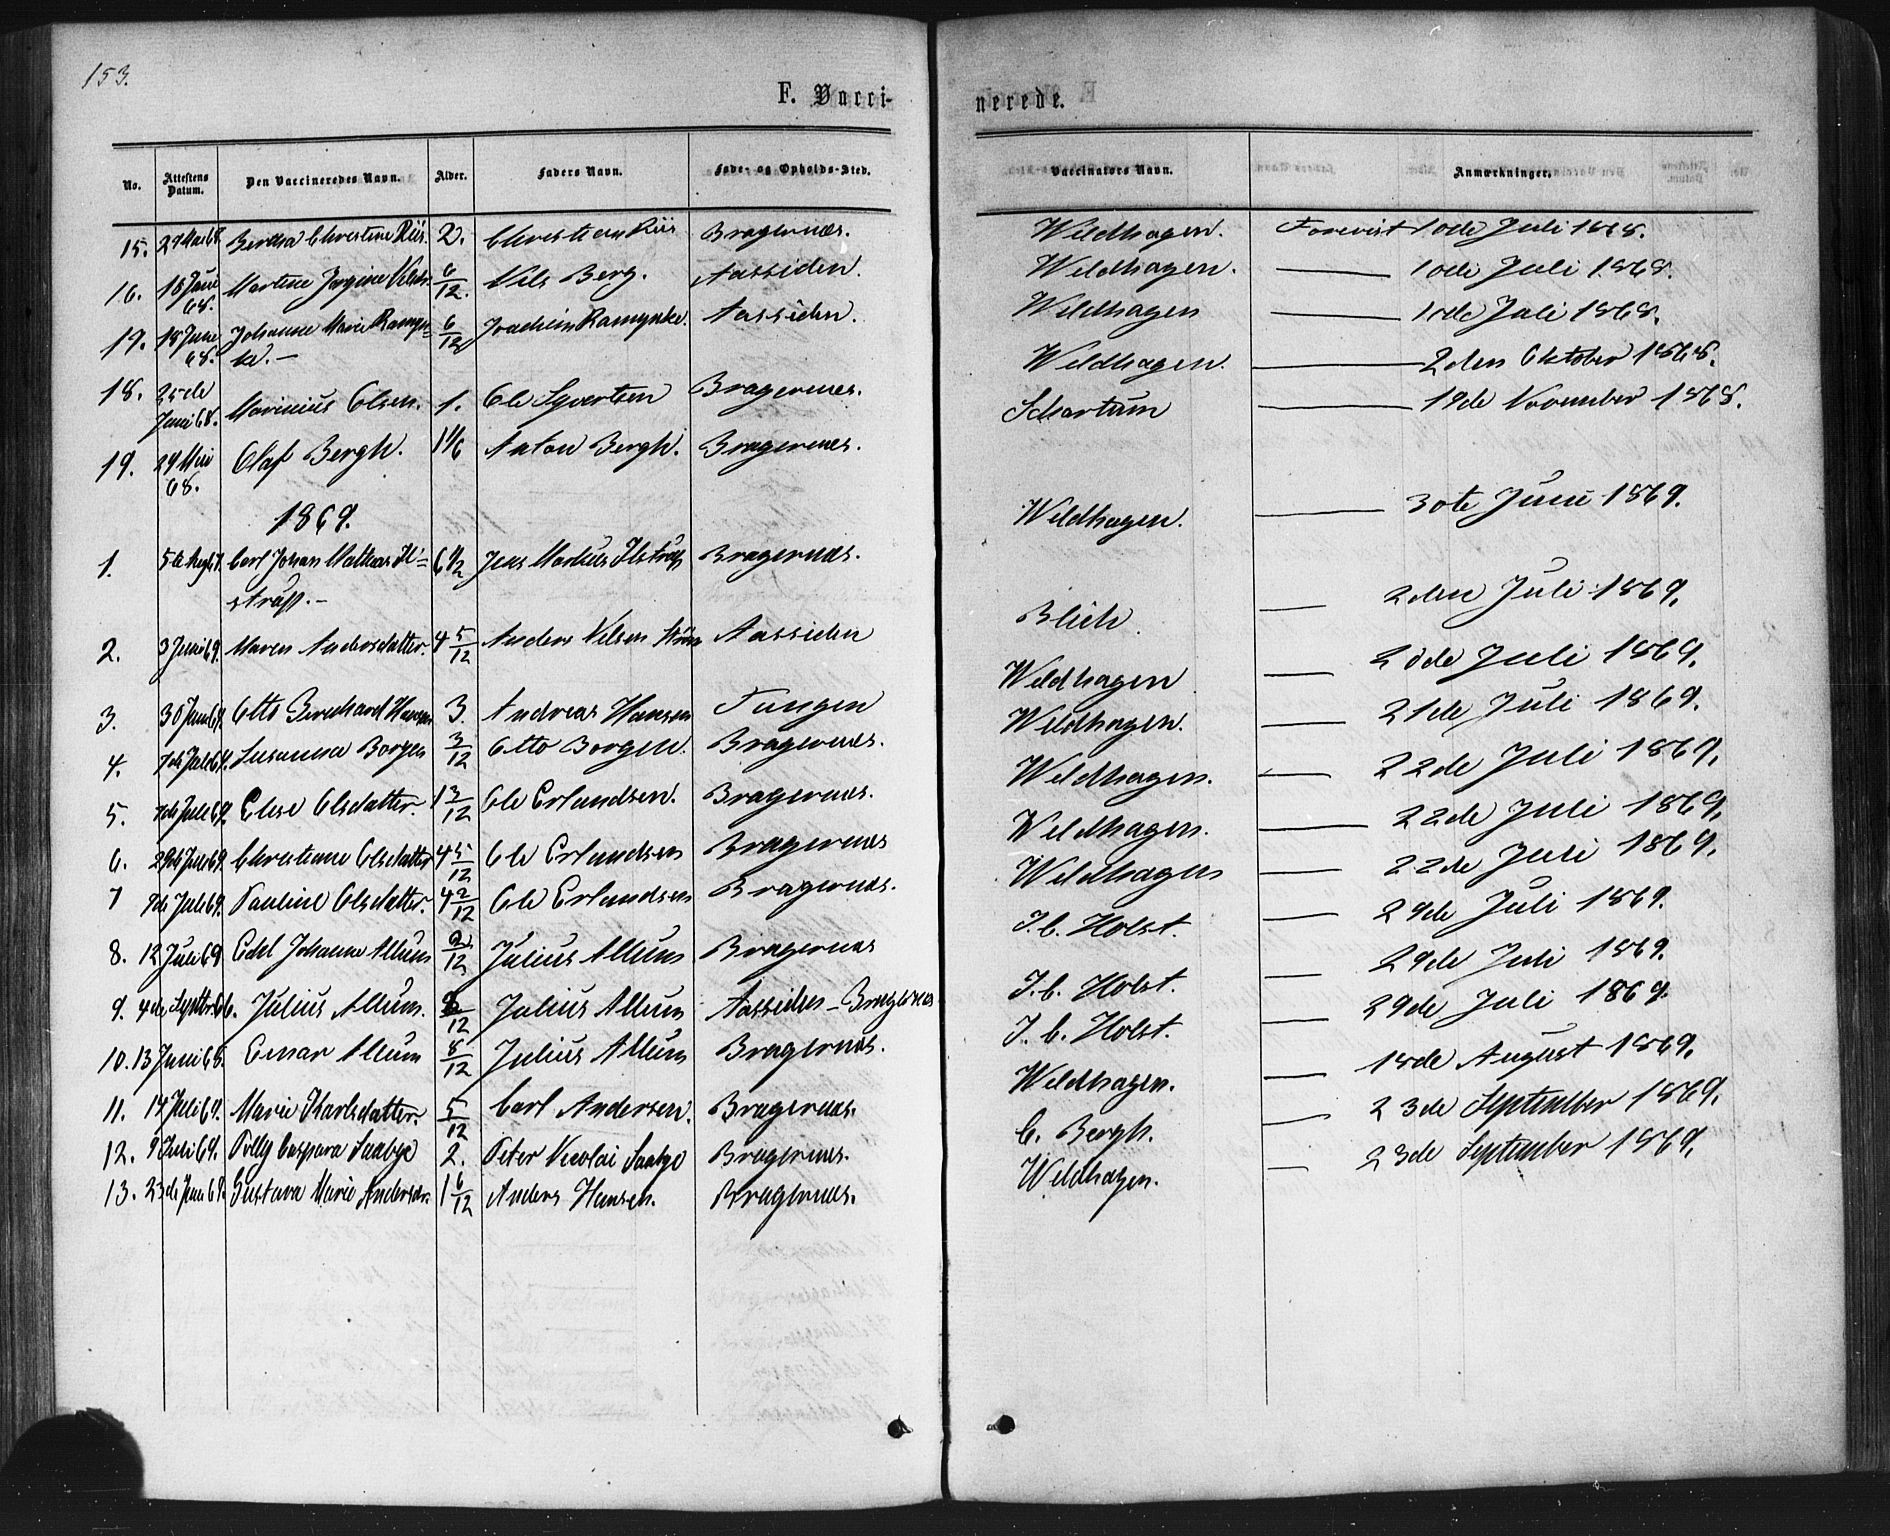 153.
F. Vacci-
nerede.
No. Attestens Datum. Den Vaccineredes Navn. Alder. Faders Navn. Føde- og Opholds-Sted. Vaccinators Navn. Anmærkninger.
15. 27 Mai 68. Bertha Christine Riis. 2. Christian Riis Bragernæs. Wildhagen. Forevist 10de Juli 1868.
16. 18 Juni 68. Martine Jørgine Nilsdr. 6/12. Nils Berg. Aassiden. Wildhagen. 10de Juli 1868.
17. 18 Juni 68. Johanne Marie Ramyn-
ke. 6/12 Joachim Ramynke. Aassiden. Wildhagen 10de Juli 1868.
18. 25de Juni 68. Marinius Olsen. 1. Ole Syvertsen Bragernes. Wildhagen. 2den Oktober 1868.
19. 29 Mai 68. Olaf Bergh. 1 1/6 Anton Bergh. Bragernes. Schartum 19de November 1868.
1869.
1. Carl Johan Mathias Il=
strup. 6 1/2 Jens Markus Ilstrup Bragernæs. Wildhagen. 30te Juni 1869.
2. 3 Juni 69. Maren Andersdatter. 4 5/12 Anders Nilsen Aassiden Blich 2den Juli 1869.
3. 30 Juni 69. Otto Bernhard Hansen 3. Andreas Hansen Tangen Wildhagen 20de Juli 1869.
4. 7de Juli 69. Susanna Borgen 3/12 Otto Borgen. Bragernæs. Wildhagen. 21de Juli 1869.
5. 7de Juli 69. Elise Olsdatter. 1 3/12 Ole Erlandsen. Bragernæs. Wildhagen. 22de Juli 1869.
6. Christiane Olsdatter 4 5/12 Ole Erlandsen Bragernæs Wildhagen. 22de Juli 1869.
7 7de Juli 69. Pauline Olsdatter. 4 2/12 Ole Erlandsen Bragernæs. Wildhagen 22de Juli 1869.
8. 12 Juli 69 Edel Johanne Allum 2/12 Julius Allum Bragernæs J. C. Holst. 29de Juli 1869.
9. 4de Septbr. 66. Julius Allum. /12 Julius Allum Aassiden - Bragernæs J. C. Holst. 29de Juli 1869.
10. 13 Juni 65. Einar Allum 8/12 Julius Allum Bragernæs. J. C. Holst. 29de Juli 1869.
11. 14 Juli 69. Marie Karlsdatter. 5/12 Carl Andersen. Bragernæs. Wildhagen. 18de August 1869.
12. 9 Juli 64. Polly Caspara Saabye 2. Peter Nicolai Saabye Bragernæs. C. Bergh. 23de September 1869.
13. 23de Juni 69. Gustava Marie Andersdr. 1 6/12 Anders Hansen. Bragernæs. Wildhagen. 23de September 1869.